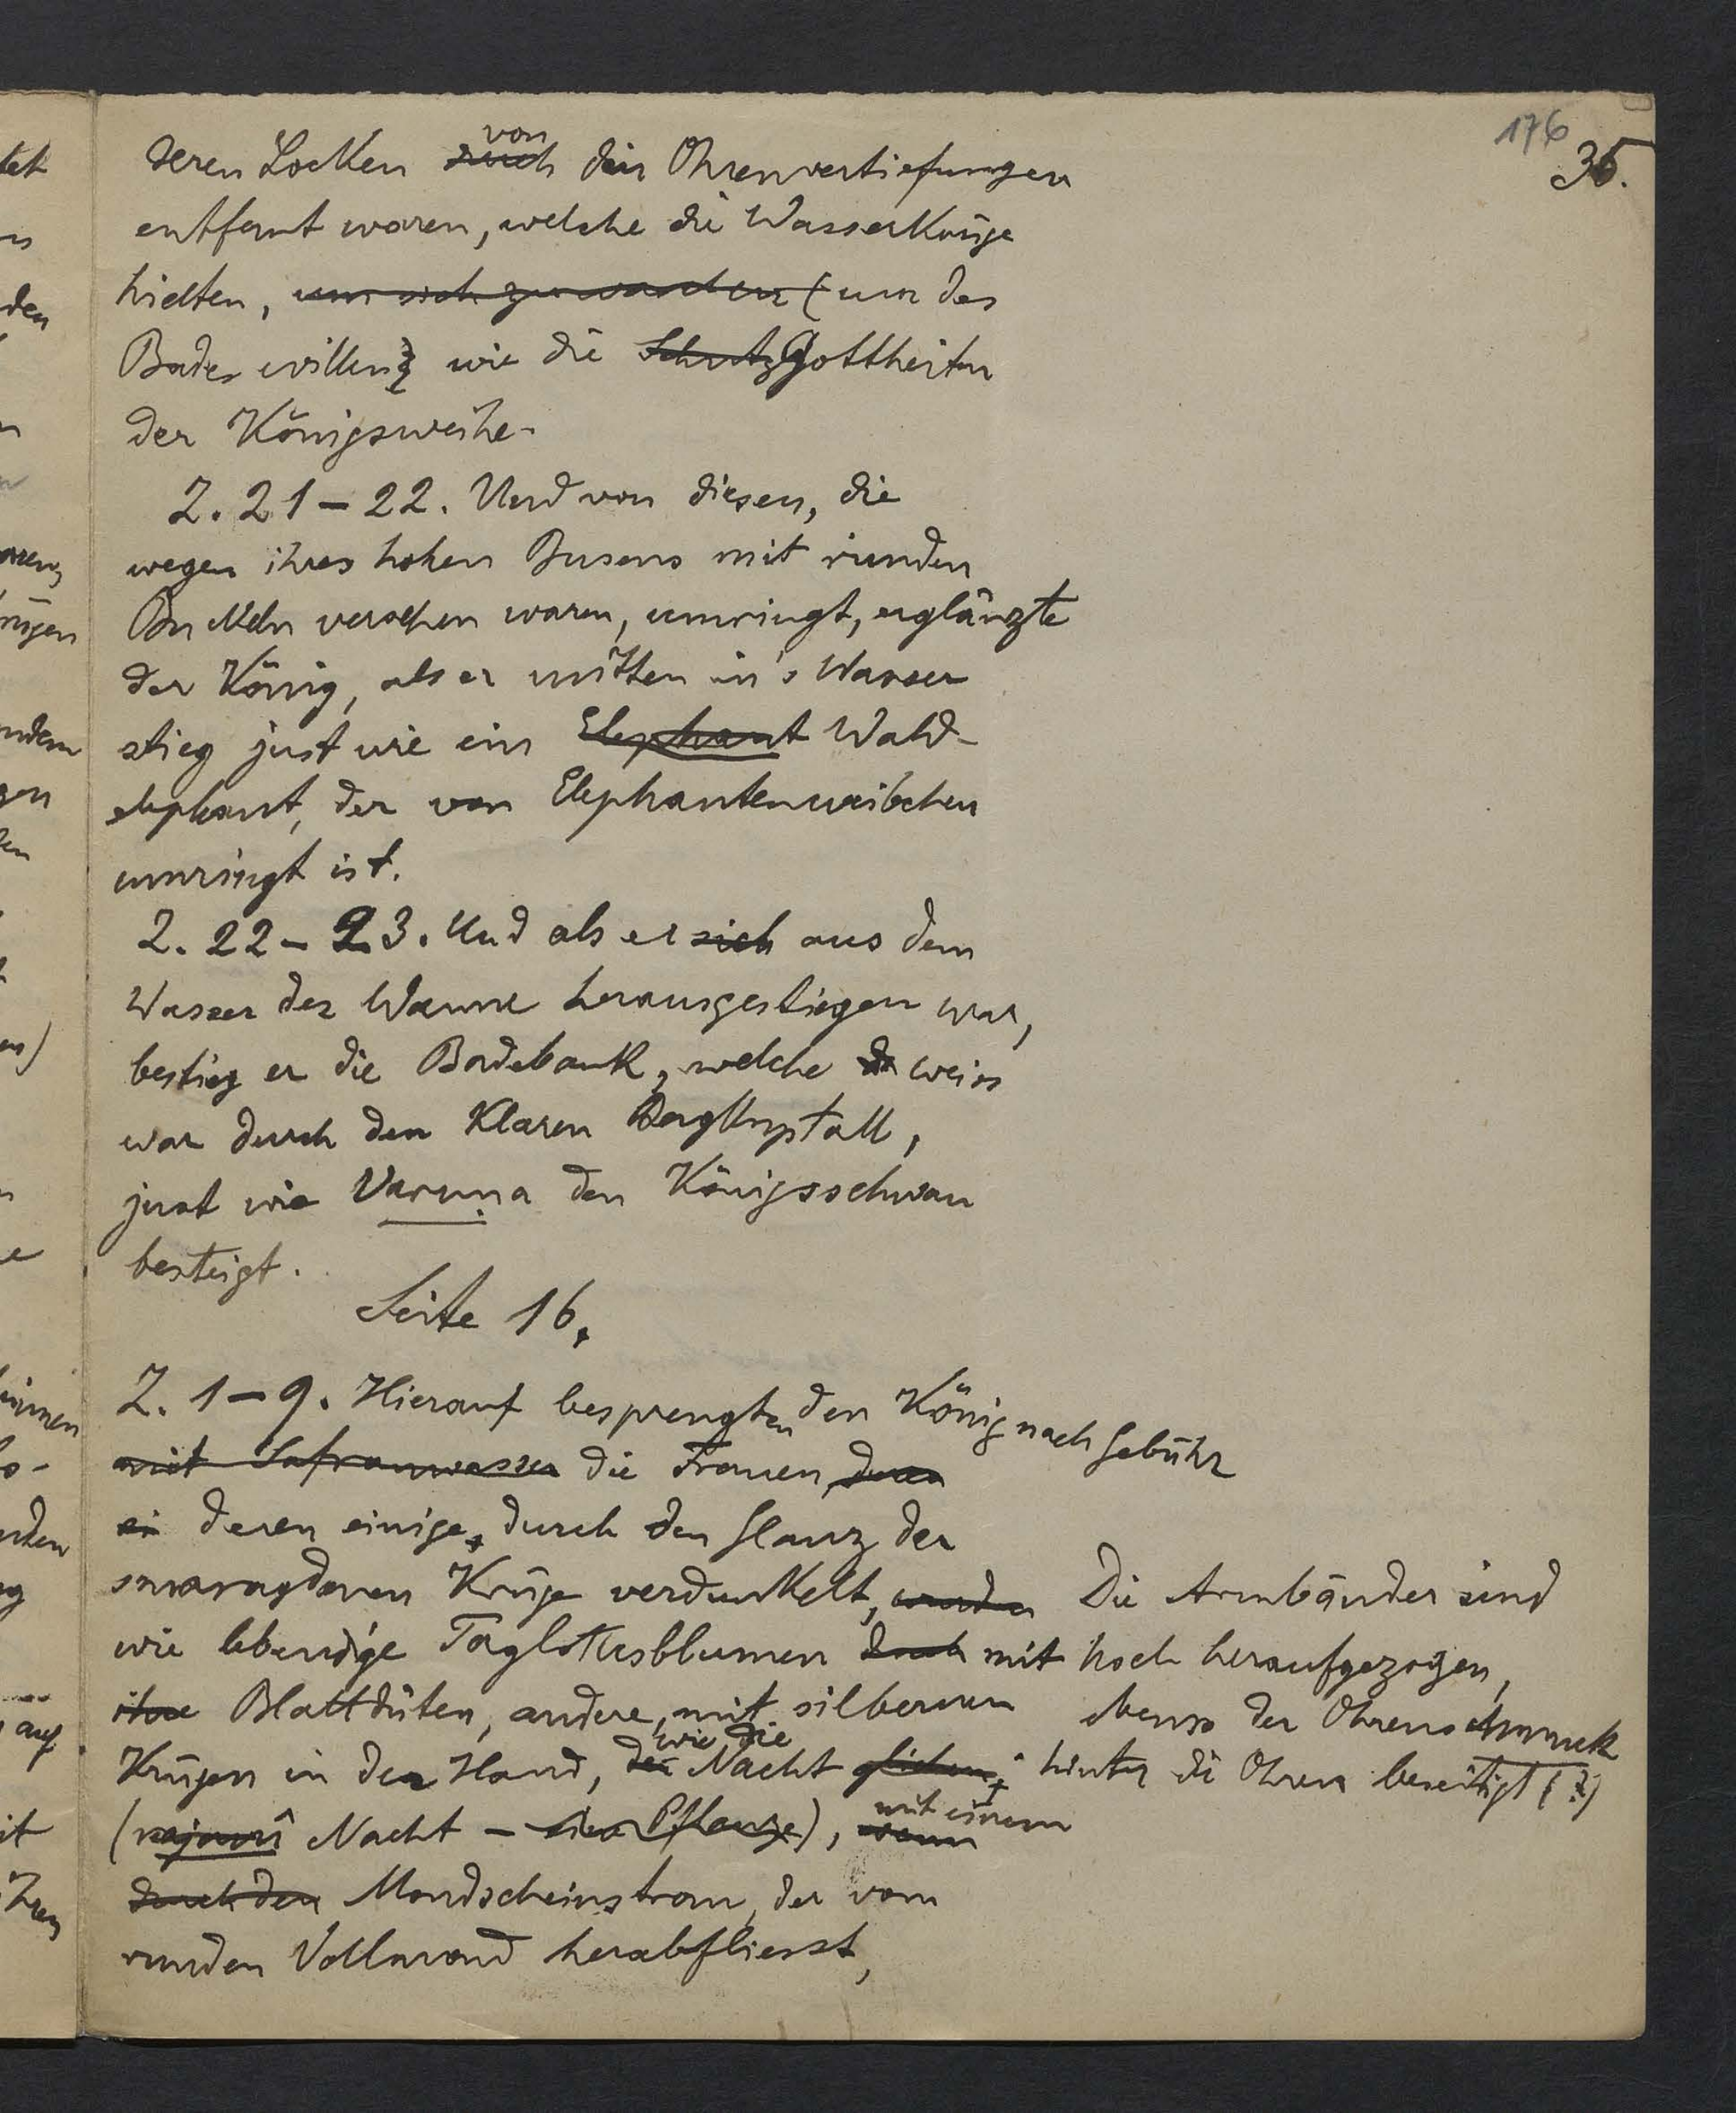 176
35.
deren Locken von den Ohrenvertiefungen
entfernt waren, welche die Wasserkrüge
hielten, um sich zu waschen (um des
Bades willen, wie die Schutz Gottheiten
der Königsweihe.
Z. 21 – 22. Und von diesen, die
wegen ihres hohen Busens mit runden
Buckeln versehen waren, umringt, erglänzte
der König, als er mitten in's Wasser
stieg just wie ein Elephant Wald-
elephant, der von Elephantenweibchen
umringt ist.
Z. 22 – 23. Und als er sich aus dem
Wasser der Wanne herausgestiegen war,
bestieg er die Badebank, welche weiss
war durch den klaren Bergkrystall,
just wie Varuṇa den Königsschwan
besteigt.
Seite 16.
Z. 1 – 9. Hierauf besprengten den König nach Gebühr
mit Safranwasser die Frauen, deren
ei deren einige, durch den Glanz der
smaragdenen Krüge verdunkelt, wurden
wie lebendige Taglotusblumen durch mit
ihre Blattdüten, andere, mit silbernen
Krügen in der Hand, der wie die Nacht glichen,
(rajanî Nacht – eine Pflanze), wenn mit einem
durch den Mondscheinstrom, der vom
runden Vollmond herabfliesst,
Die Armbänder sind
hoch heraufgezogen,
ebenso der Ohrenschmuck
hinter die Ohren beseitigt (?)